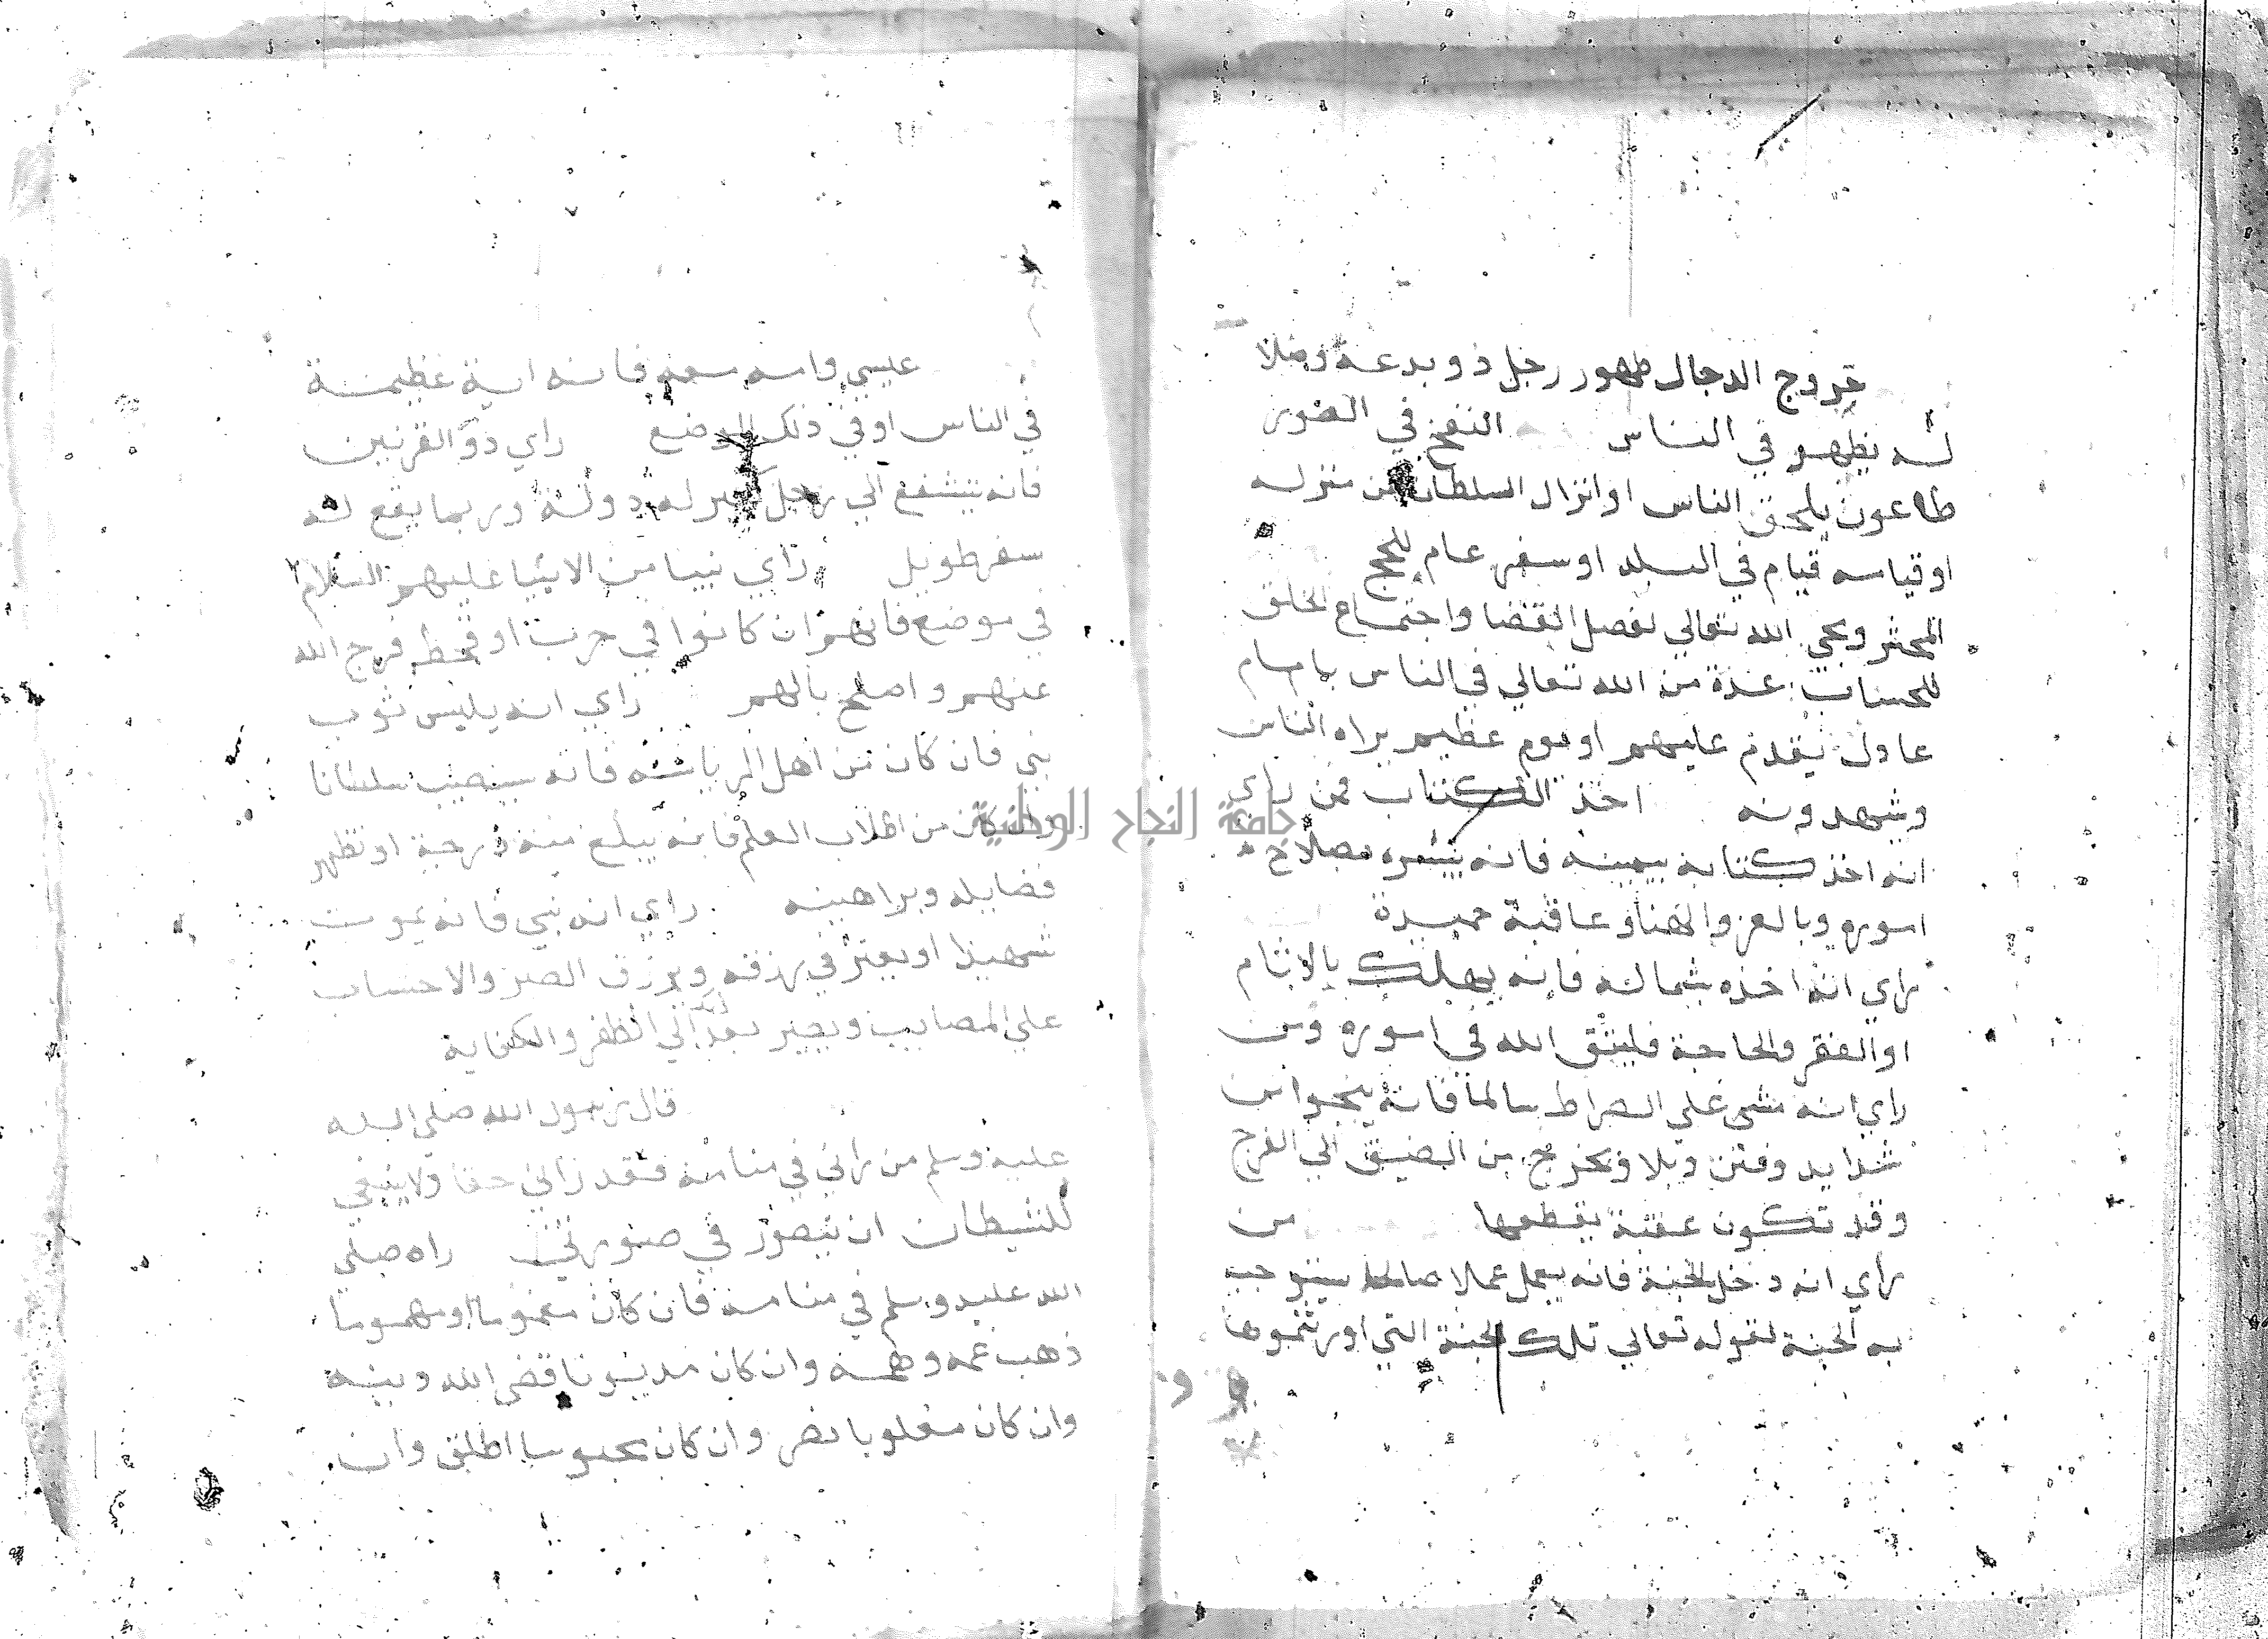 خروج الدجال ظهور رجل ذو بدعة وضلا
لـه يظهر في الناس النفخ في الصور
طاعون يلحق الناس او انزال السلطان من منزله
او قياسه قيام في البلد او سفر عام للحج
المحشر ومجي الله تعالي لفصل القضا واجتماع الخلق
للحساب عدة من الله تعالي في الناس بامام
عادل يقدم عليهم او يوم عظيم يراه الناس
وشهدونه اخذ الكتاب فمن راي
انه اخذ كتابه بيمينه فانه يبشره بصلاح
اموره وبالعز والهنا وعاقبة حميدة
راي انه اخذه بشماله فانه يهلك بالاثام
او الفقر والحاجة فليتق الله في اموره ومن
راي انه مشي علي الصراط سالما فانه ينجوا من
شدايد وفتن وبلا ويخرج من الضيق الي الفرج
وقد تكون عقبة يقطعها من
راي انه دخل الجنة فانه يعمل عملا صالحا يستوجب
به الجنة لقوله تعالي تلك الجنة التي اورثتموها
عيسي واسه فانه اية عظيمة
في الناس او في ذلك الموضع راي ذو القرنين
فانه يتشفع الي رجل كبير له دولة وربما يقع له
سفر طويل راي نبيا من الانبيا عليهم السلام
في موضع فانهم ان كانوا في حرب او قحط فرج الله
عنهم واصلح بالهم راي انه يلبس ثوب
نبي فان كان من اهل الرياسة فانه سيصيب سلطانا
وان كان من اطلاب العلم فانه يبلغ منه درجة او تظهر
فضايله وبراهينه راي انه نبي فانه يموت
شهيدا او يعتر في رزقه ويرزق الصبر والاحتساب
علي المصايب ويصير بعد ذلك الي الظفر والكفاية
قال رسول الله صلي الله
عليه وسلم من راني في منامه فقد راني حقا ولا ينبغي
للشيطان ان يتصور في صورتي راه صلي
الله عليه وسلم في منامه فان كان مغموما او مهموما
ذهب غمه وهمه وان كان مديونا قضي الله دينه
وان كان مغلوبا نصر وان كان محبوسا اطلق وان
جامعة النجاح الوطنية